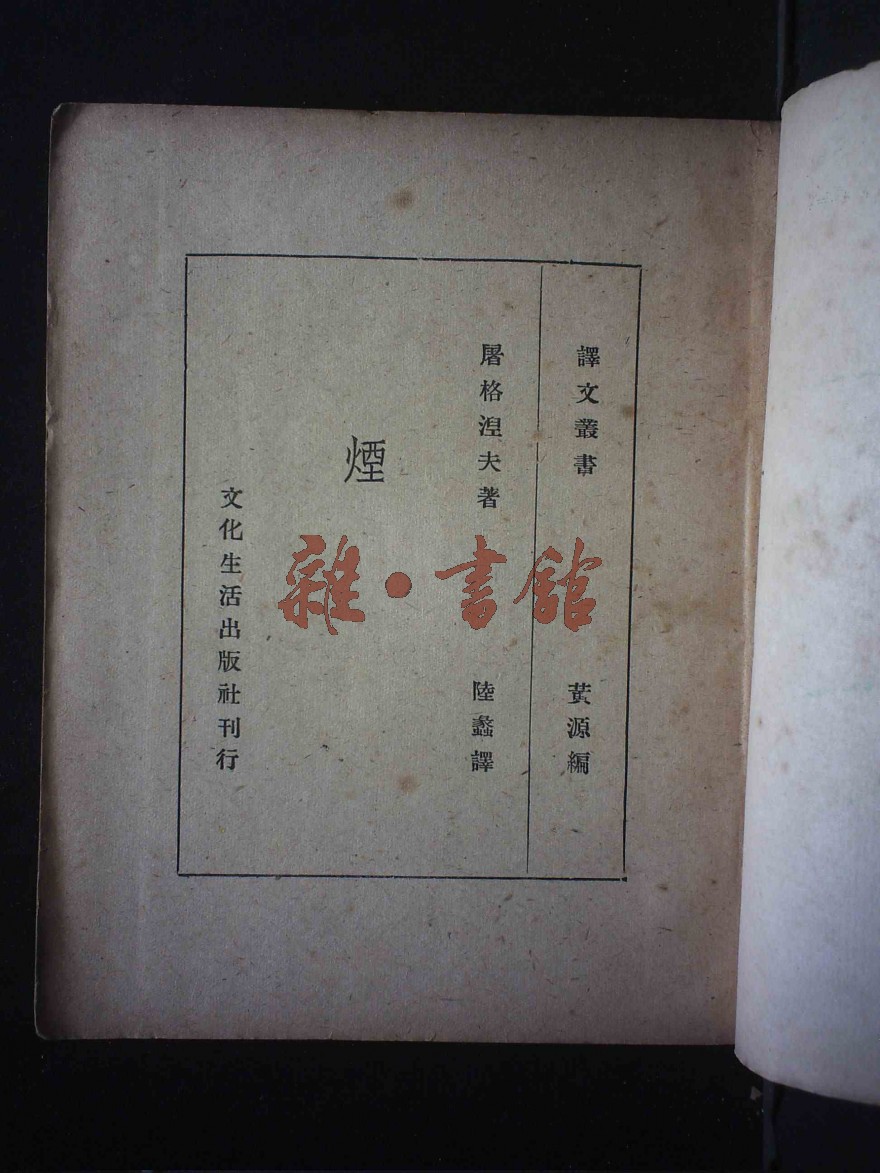 譯文叢書
黃源編
屠格湼夫著
陸蠡譯
煙
文化生活出版社刊行
雜·書館